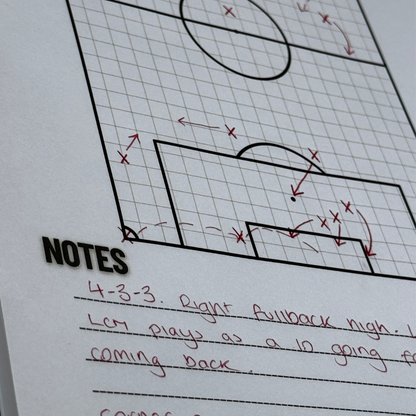 NOTES
4-3-3. Right fullback high.
LCM plays as a 10 going
coming back.